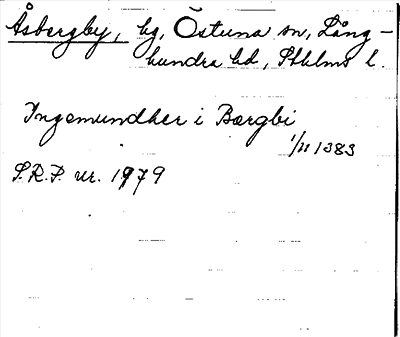 Åsbergby, hg, Östuna sn, Lång-
hundra hd, Sthlms l.
Ingemundher i Bærgbi
1/11 1383
S.R.P. nr. 1979